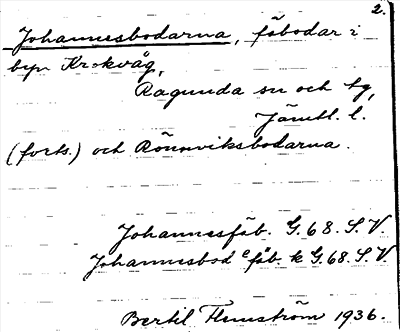 2.
Johannesbodarna, fäbodar i
byn Krokvåg,
Ragunda sn och tg,
Jämtl. l.
(forts.) och Rönnviksbodarna.
Johannesfäb. G. 68. S. V.
Johannesbod e fäb. k G. 68. S. V.
Bertil Flemström 1936.